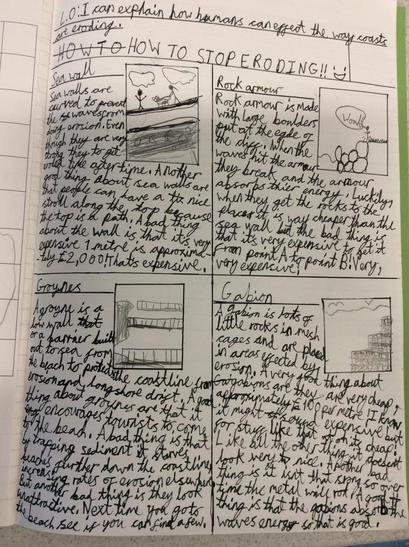 L.O: I can explain how humans can effect the way coasts
are eroding.
HOW TO HOW TO STOP ERODING!!
Sea wall
Sea walls are
curved to prevent
the sea waves from
doing erosion. Even
though they are very
strong they to get
weak after time. Another
good thing about sea walls are
that people can have a nice
stroll along the top because
the top is a path. A bad thing
about the wall is that it's very
expensive 1 metre is approximat
-tly £2,000! That's expensive.
Rock armour
Rock armour is made
with large boulders
put at the edge or
the cliff. When the
waves hit the armour
they break and the armour
absorps thier energy. Luckily
when they get the rocks to the
place it is way cheaper than the
sea wall but the bad thing is
that it's very expensive to get it
from point A to point B. Very,
very expensive!
Wow!
Groynes
A groyne is a
low wall that
or a barrier built
out to sea from
the beach to protect the coastline from
erosion and longshore drift. A good
thing about groynes are that it
encourages tourists to come
to the beach. A bad thing is that
by trapping sediment it starves
beaches further down the coastline
increasing rates of erosion elsewhere
But another bad thing is they look
unattractive. Next time you go to
the beach see if you can find a few.
Gabion
A gabion is lots of
little rocks in mesh
cages and are placed
in areas effected by
erosion. A very good thing about
gabions are they are very cheap,
approximately £100 per metre. I know
it might sound expensive but
for stuff like that it's cheap.
Like all the other thing it doesn't
look very nice. Another bad
thing is it isn't that strong so over
time the metal will rot. A good
thing is that the gabions absorb the
waves energy so that is good.